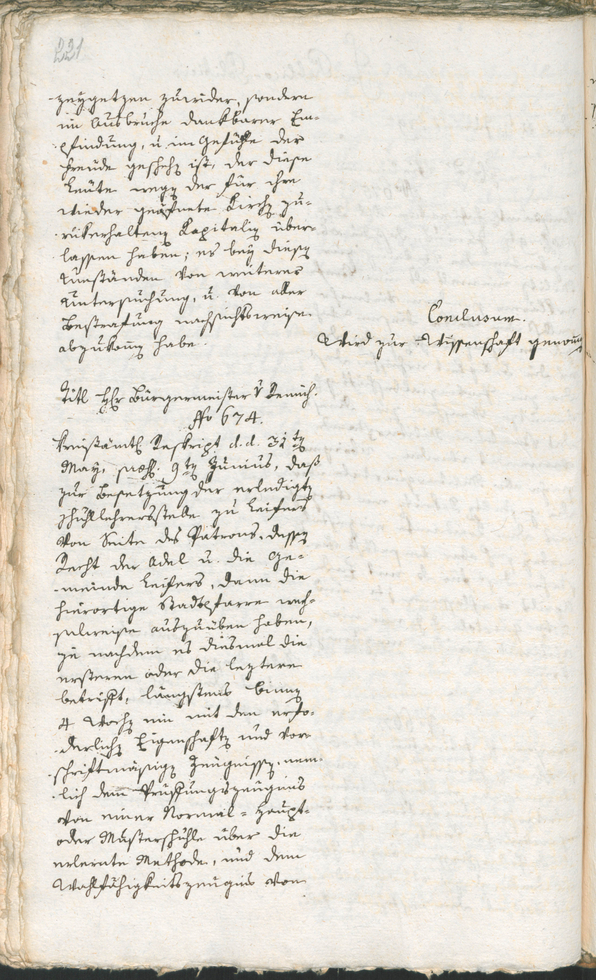 221
zeygetzen zuwider, sondern
im Ausbruche dankbarer Em-
pfindung, u. im Gefühle der
Freude geschehen ist, der diese
Leute wegen der für ihre
wieder geöfnete Kirche zu-
rükerhaltenen Kapitalien über-
lassen haben; es bey diesen
Umständen von weiterer
Untersuchung, u. von aller
Bestrafung nachsichtsweise
abzukommen habe.
Conclusum.
Wird zur Wissenschaft genommen
Titl Hr Bürgermeister v
No 674.
Kreisämtl Reskript d.d. 31ten
May, præs. 9ten Junius, daß
zur Besetzung der erledigten
Schullehrersstelle zu Leifers
von Seite des Patrons, dessen
Recht der Adel u. die Ge-
meinde Leifers, dann die
hierortige Stadtpfarre wech-
selweise auszuüben haben,
je nachdem es diesmal die
ersteren oder die leztere
betrifft, längstens binnen
4 Wochen ein mit den erfo-
derlichen Eigenschaften und vor-
schriftmäsigen Zeugnissen, nem-
lich dem Prüffungszeugnis
von einer Normal- Haupt-
oder Musterschule über die
erlernte Methode, und dem
Wahlfähigkeitszeugnis von